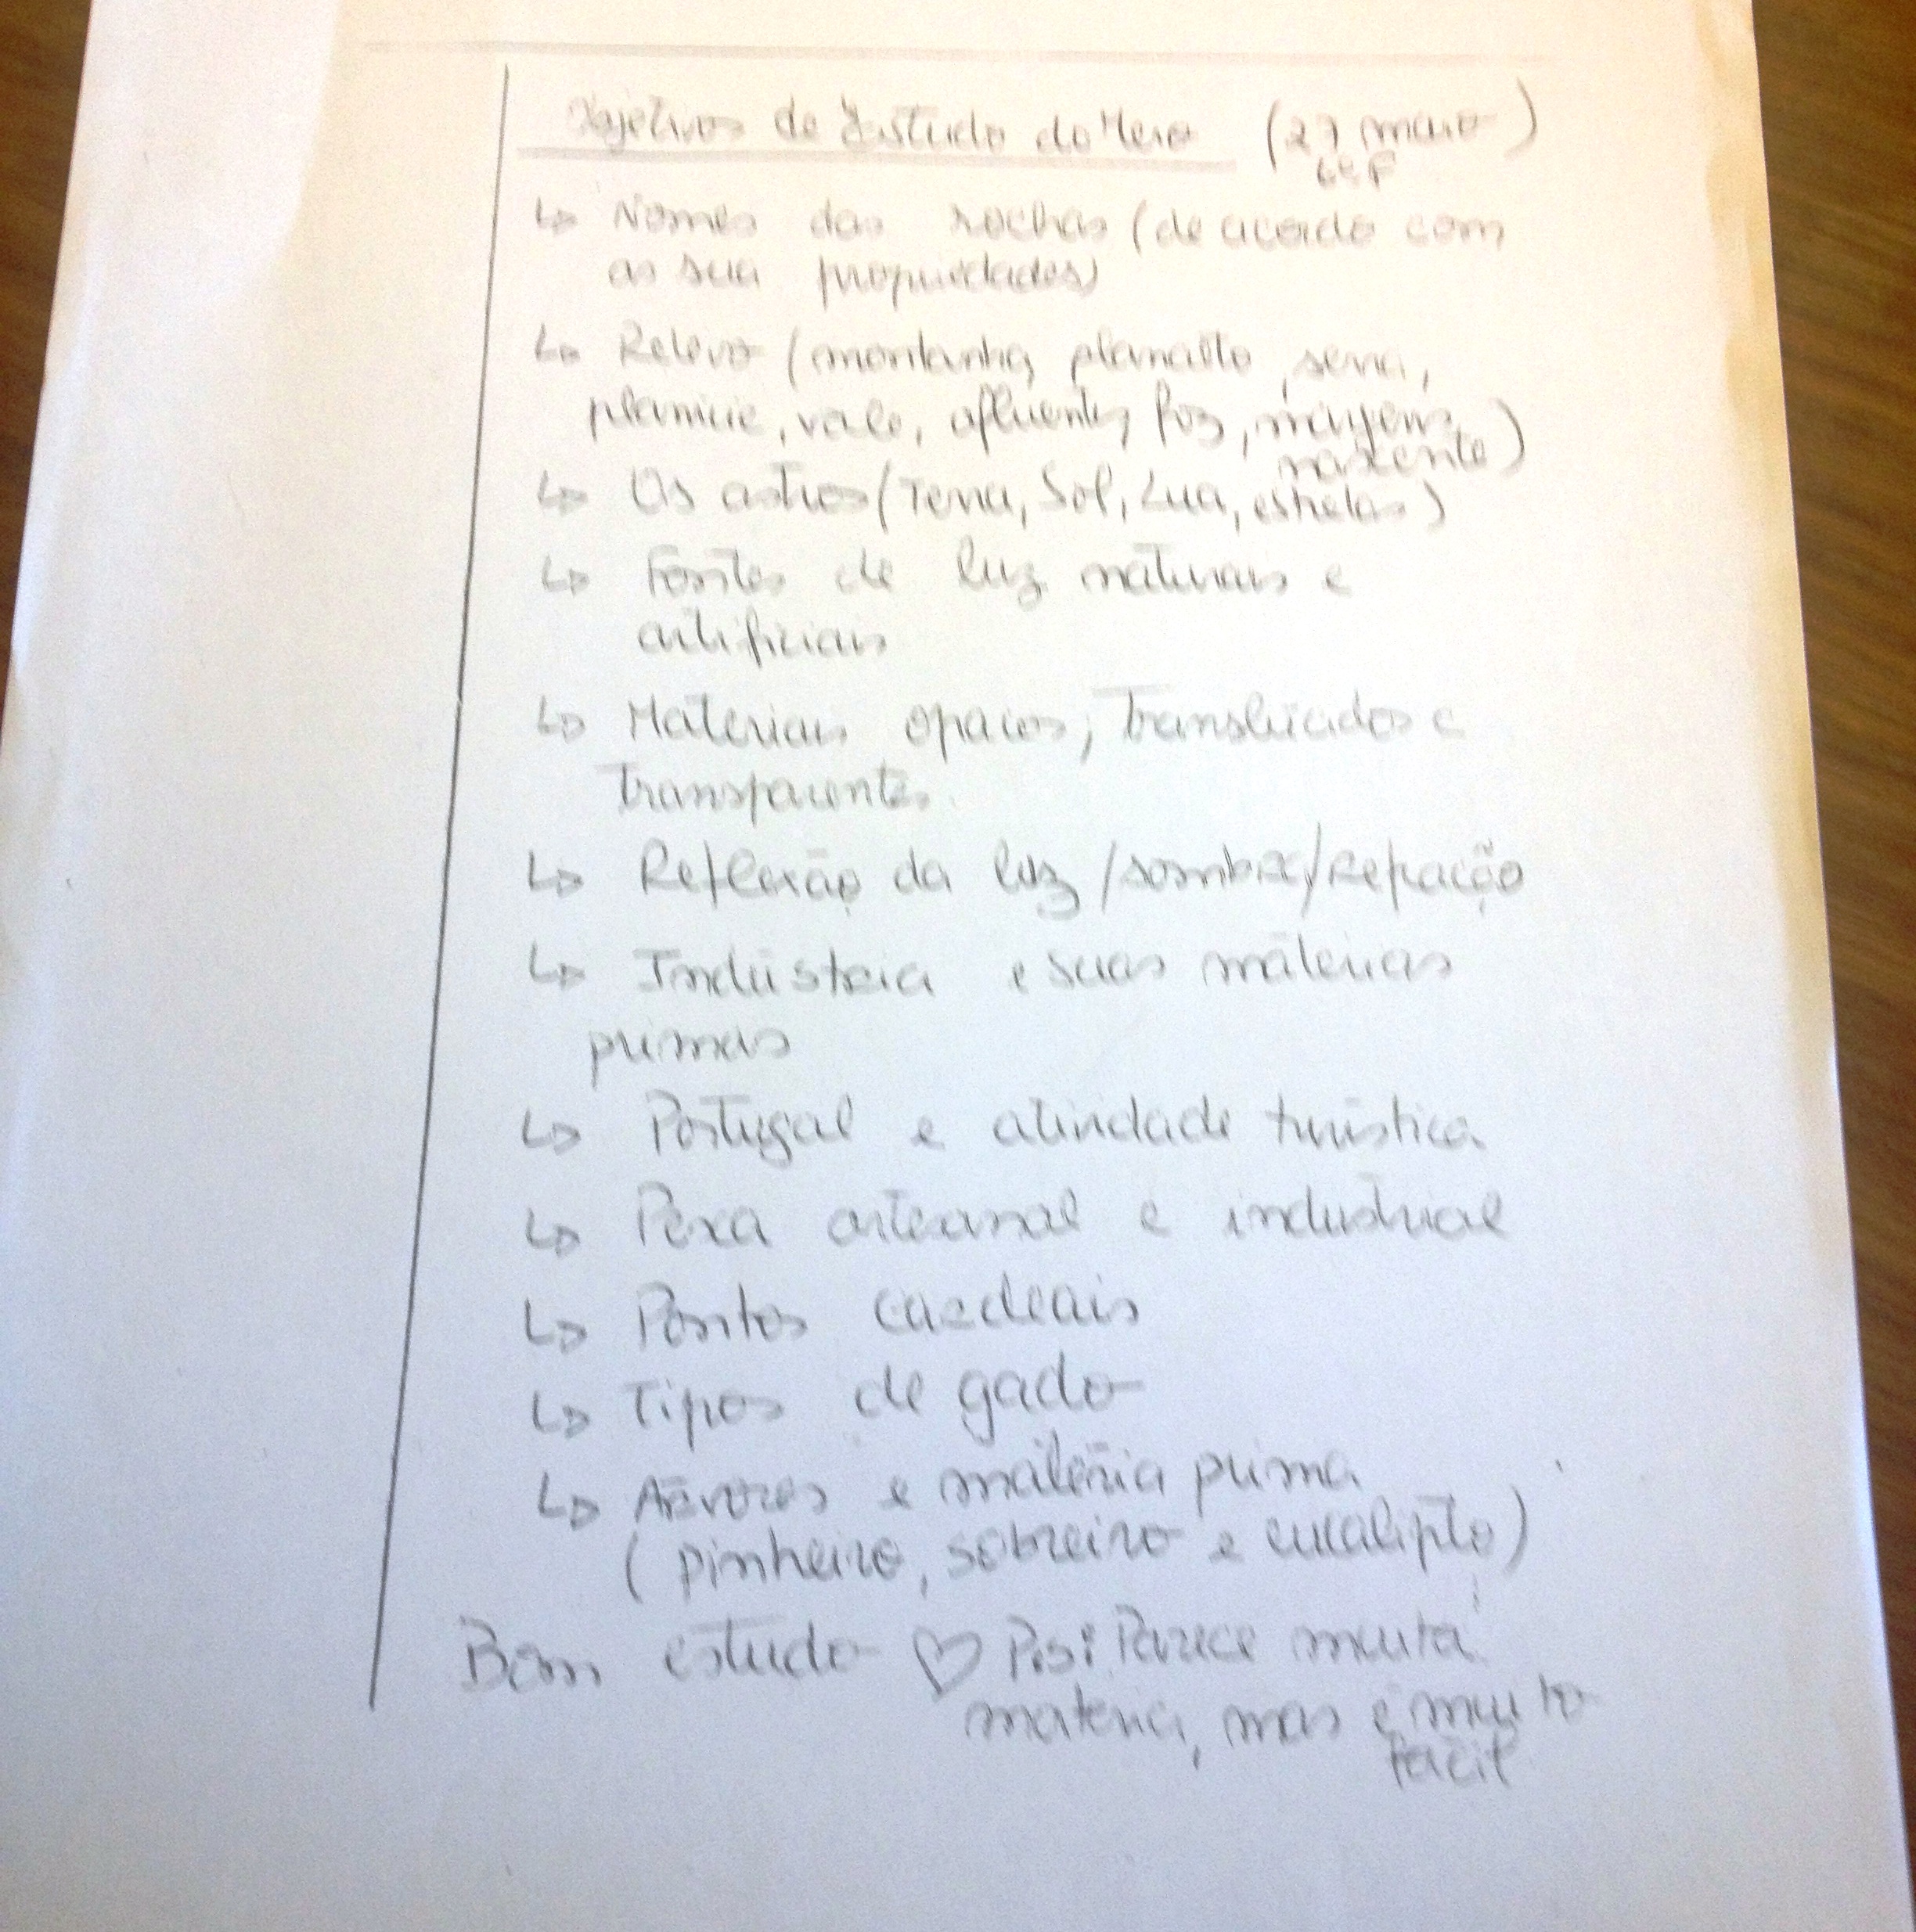 Objetivos de Estudo do Meio (27 maio)
6ªF
↳ Nomes das rochas (de acordo com
as sua propriedades)
↳ Relevo (montanha, planalto, serra,
planície, vale, afluentes, foz, margens,
nascente)
↳ Os astros (Terra, Sol, Lua, estrelas)
↳ Fontes de luz naturais e
artificiais
↳ Materiais opacos, Translúcidos e
Transparentes.
↳ Reflexão da luz /sombra/ refração
↳ Indústria e suas matérias
primas
↳ Portugal e atividade turística
↳ Pesca artesanal e industrial
↳ Pontos cardeais
↳ Tipos de gado
↳ Árvores e matéria prima
(pinheiro, sobreiro e eucalipto)
Bom estudo ♡ P.s: Parece muita
matéria, mas é muito
fácil